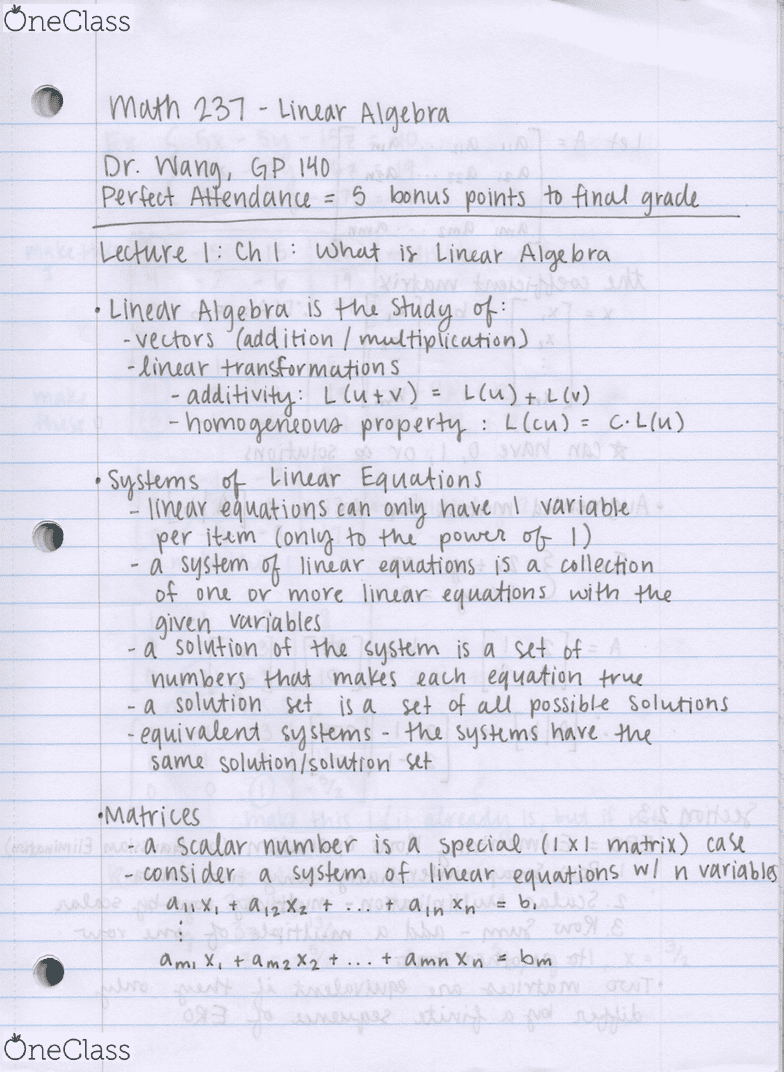 OneClass
Math 237 - Linear Algebra
Dr. Wang, GP 140
Perfect Attendance = 5 bonus points to final grade
Lecture 1: Ch 1: What is Linear Algebra
• Linear Algebra is the study of:
- vectors (addition / multiplication)
- linear transformations
- additivity: L(u+v) = L(u) + L(v)
- homogeneous property: L(cu) = c·L(u)
• Systems of Linear Equations
- linear equations can only have 1 variable
per item (only to the power of 1)
- a system of linear equations is a collection
of one or more linear equations with the
given variables
- a solution of the system is a set of
numbers that makes each equation true
- a solution set is a set of all possible solutions
- equivalent systems - the systems have the
same solution/solution set
• Matrices
- a scalar number is a special (1x1 matrix) case
- consider a system of linear equations w/ n variables
a₁₁x₁ + a₁₂x₂ + ... + a₁ₙxₙ = b₁
⋮
aₘ₁x₁ + aₘ₂x₂ + ... + aₘₙxₙ = bₘ
OneClass